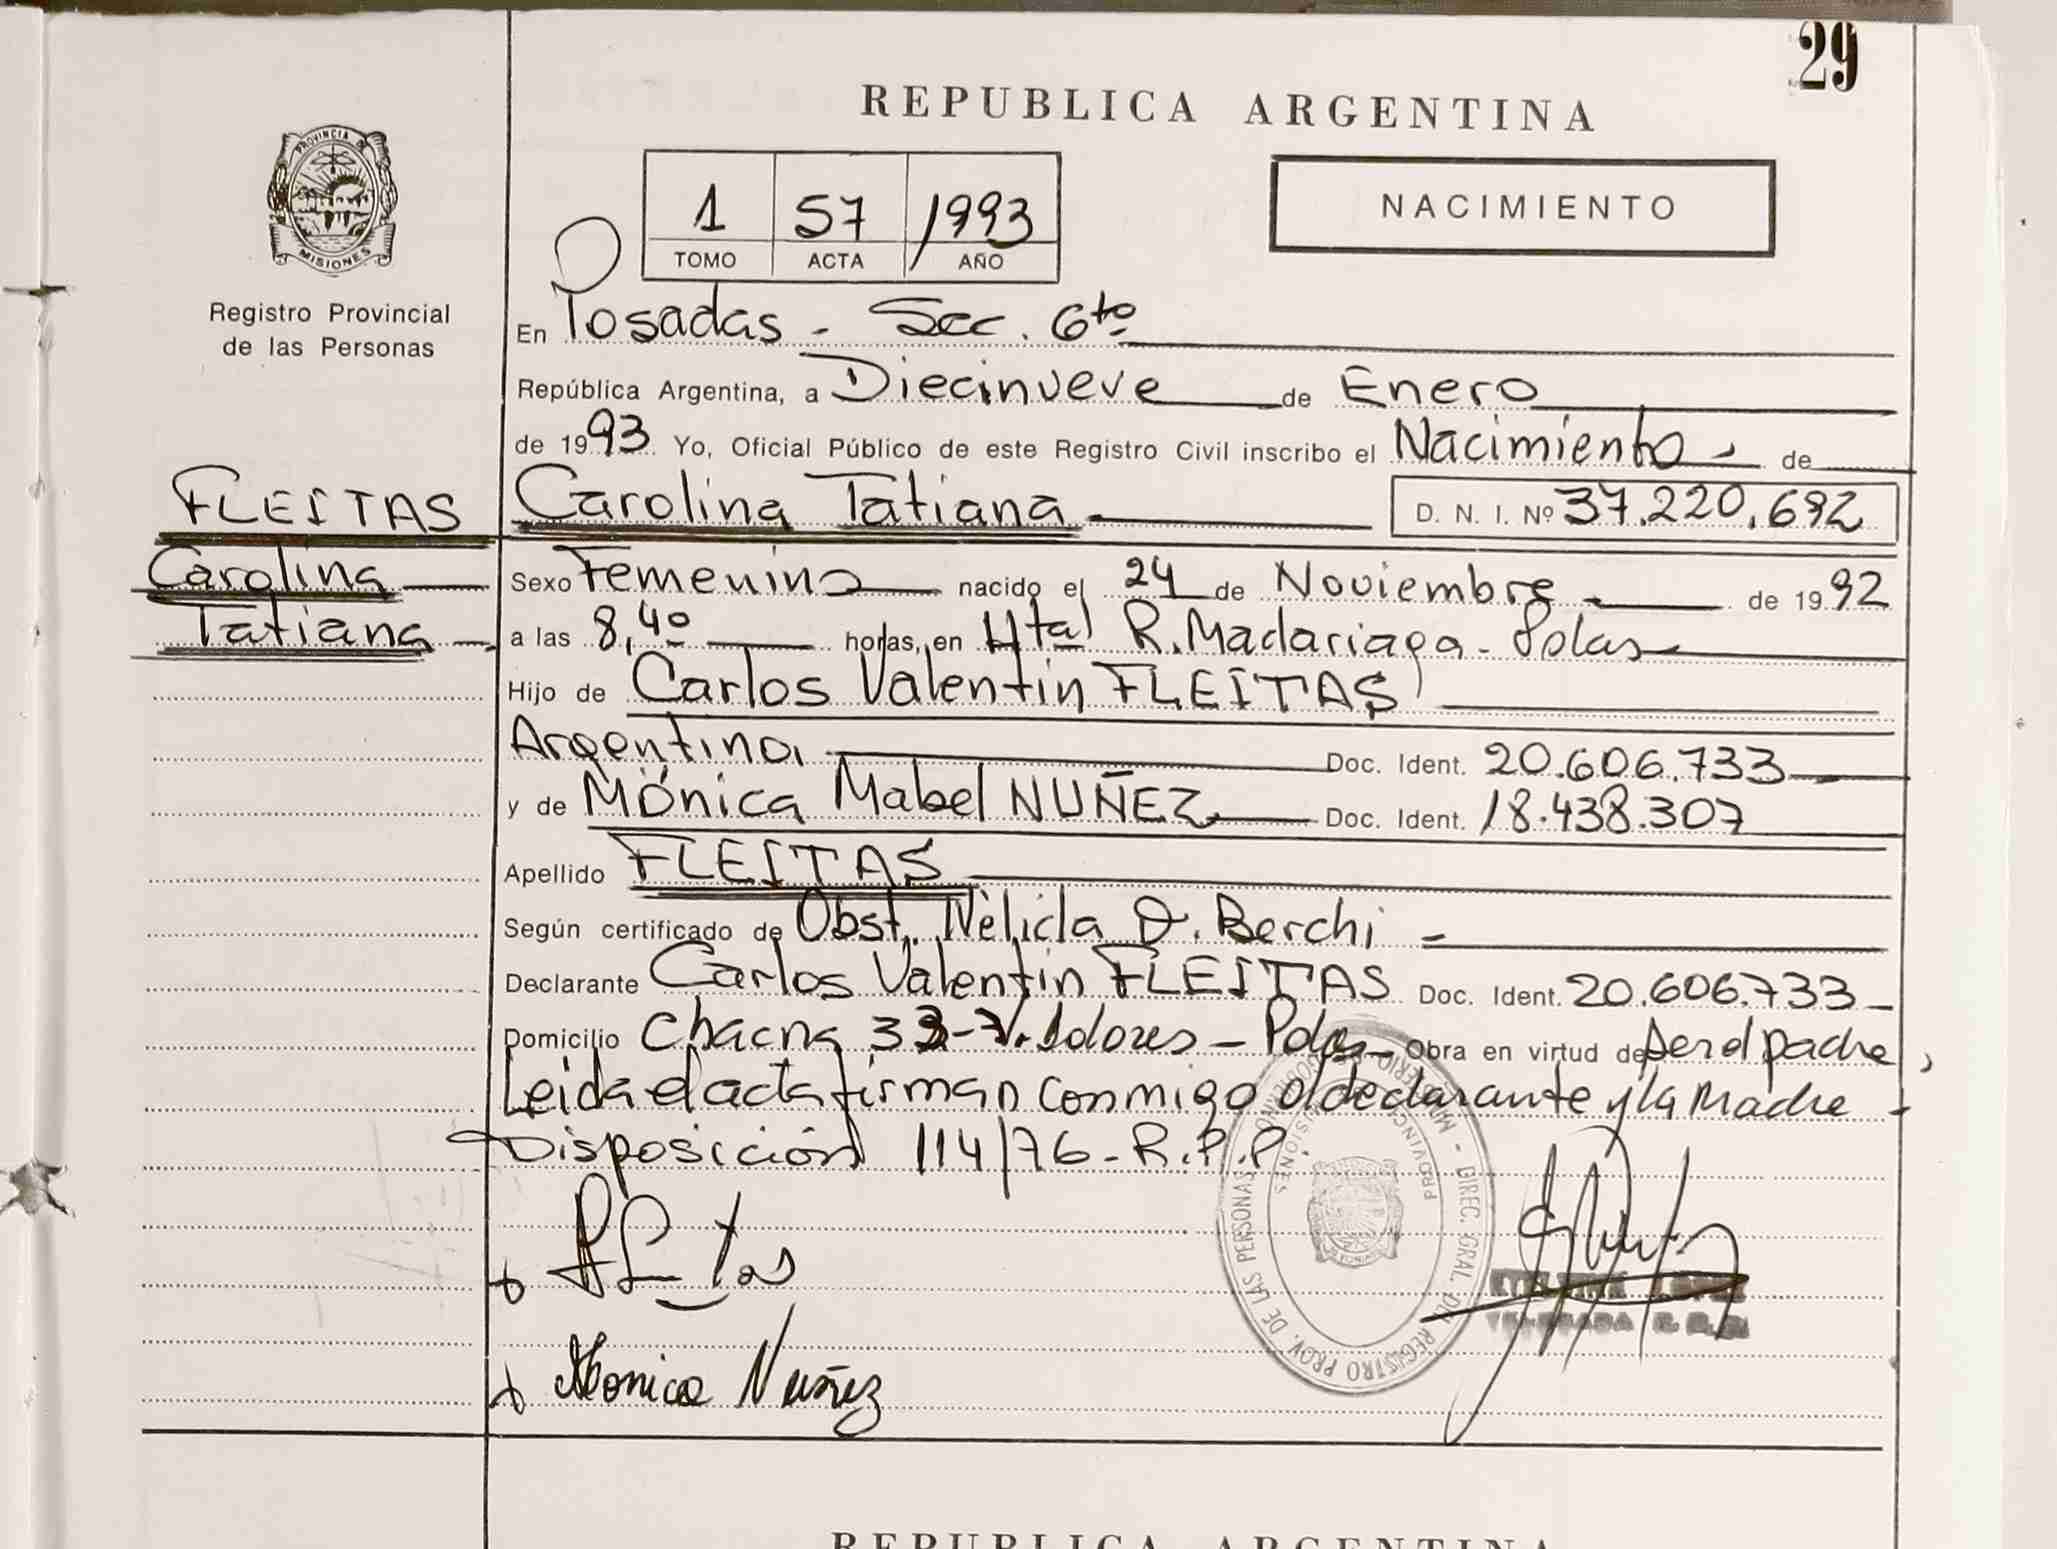 29
REPUBLICA ARGENTINA
PROVINCIA DE
MISIONES
1 57 1993
TOMO ACTA AÑO
NACIMIENTO
Registro Provincial
de las Personas
En Posadas - Sec. 6to
República Argentina, a Diecinueve de Enero
de 1993 Yo, Oficial Público de este Registro Civil inscribo el Nacimiento de
FLEITAS
Carolina
Tatiana
Carolina Tatiana D. N. I. Nº 37.220.692
Sexo Femenino nacido el 24 de Noviembre de 1992
a las 8,40 horas, en Htal R. Madariaga - Pdas
Hijo de Carlos Valentin FLEITAS
Argentino, Doc. Ident. 20.606.733
y de Mónica Mabel NUÑEZ Doc. Ident. 18.438.307
Apellido FLEITAS
Según certificado de Obst. Nèlida D. Berchi -
Declarante Carlos Valentin FLEITAS Doc. Ident. 20.606.733
Domicilio Chacra 33 - V. Dolores - Pdas - Obra en virtud de ser el padre,
Leida el acta firman conmigo el declarante y la Madre -
Disposición 114/76 - R.P.P.
DIREC. GRAL. DEL REGISTRO PROV. DE LAS PERSONAS
PROVINCIA MISIONES
Monica Nuñez
REPUBLICA ARGENTINA